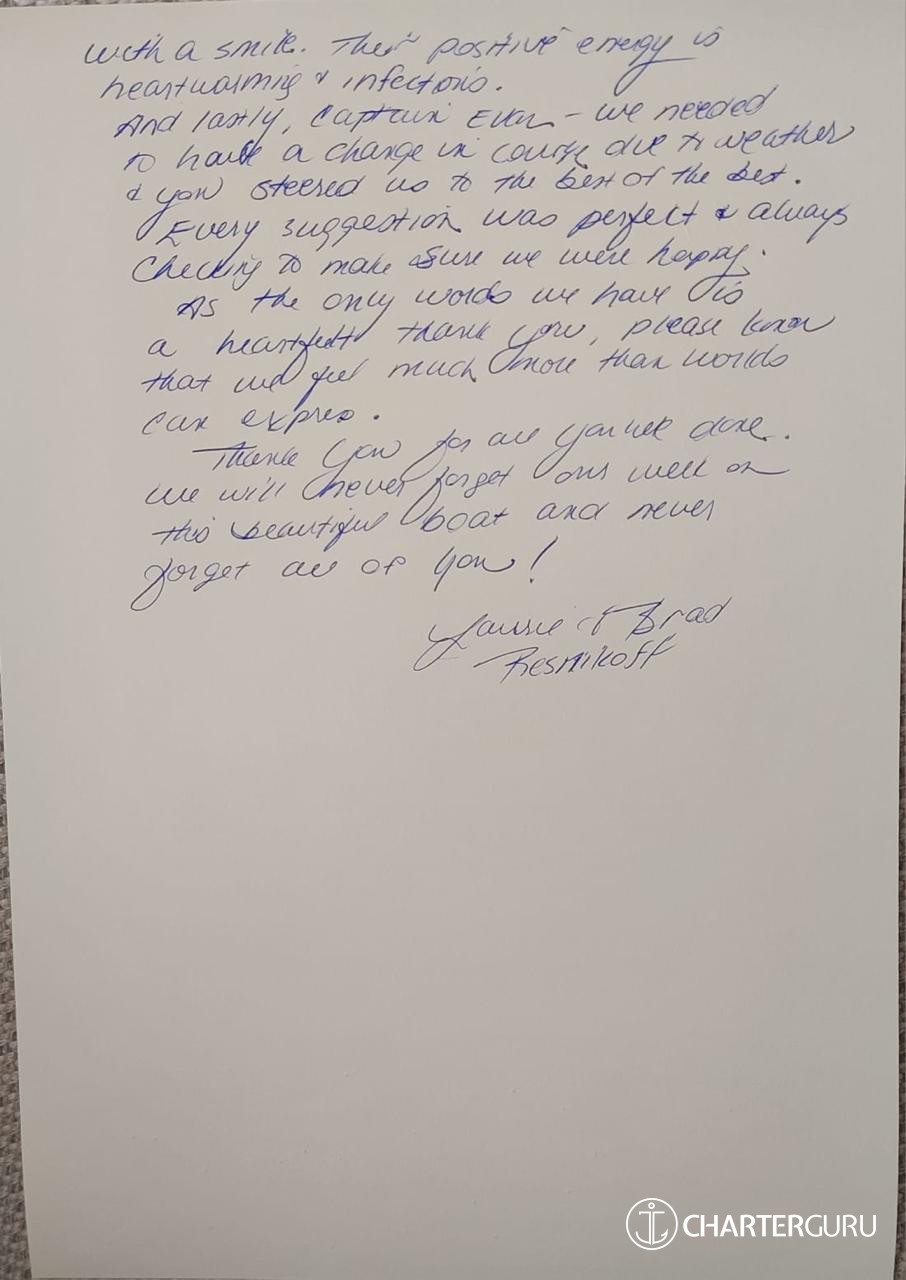 with a smile. Their positive energy is
heartwarming & infectious.
And lastly, Captain Evan - we needed
to have a change in course due to weather
& you steered us to the best of the best.
Every suggestion was perfect & always
checking to make sure we were happy.
As the only words we have is
a heartfelt thank you, please know
that we feel much more than words
can express.
Thank you for all you've done.
We will never forget our week on
this beautiful boat and never
forget all of you!
Laurie & Brad
Resnikoff
CHARTERGURU